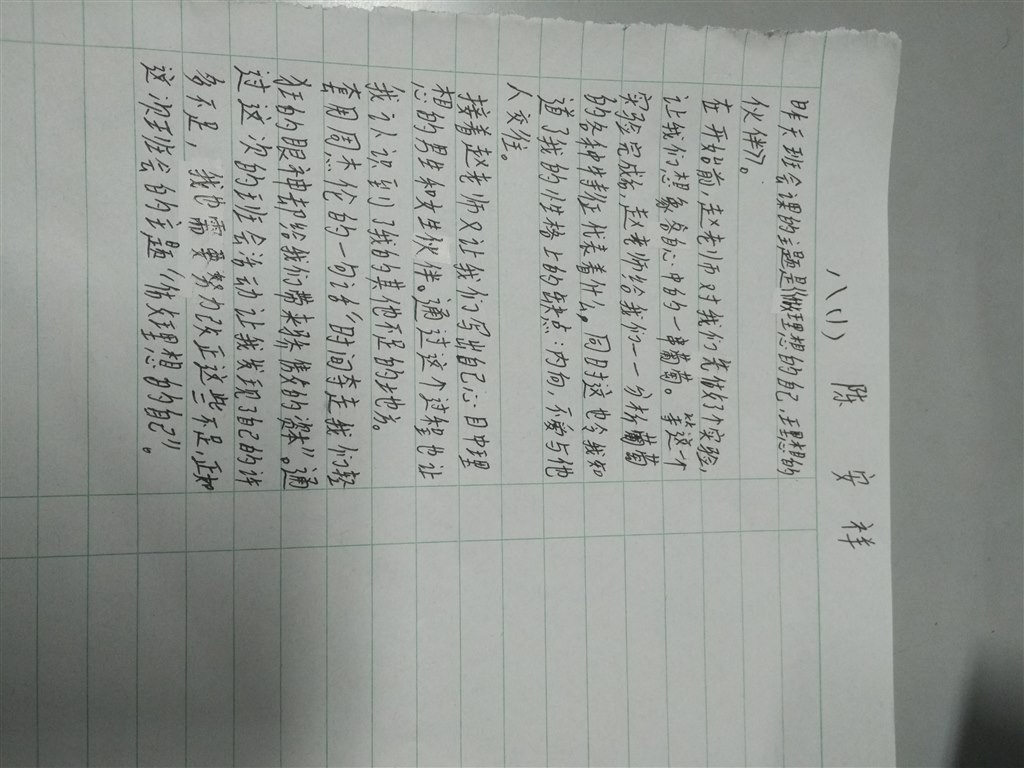 八(1) 陈安祥
昨天班会课的主题是《做理想的自己,理想的
伙伴》。
在开始前,赵老师对我们先做了个实验
让我们想象自己心中的一串葡萄。等这个
实验完成后,赵老师给我们一一分析葡萄
的各种特征代表着什么。同时这也令我知
道了我的性格上的缺点:内向,不爱与他
人交往。
接着赵老师又让我们写出自己心目中理
想的男生和女生伙伴。通过这个过程也让
我认识到了我的其他不足的地方。
套用周杰伦的一句话“时间李走,我们轻
狂的眼神都给我们带来骄傲的资本”。通
过这次的班会活动让我发现了自己的许
多不足,我也需要努力改正这些不足,正如
这次班会的主题“做理想的自己”。